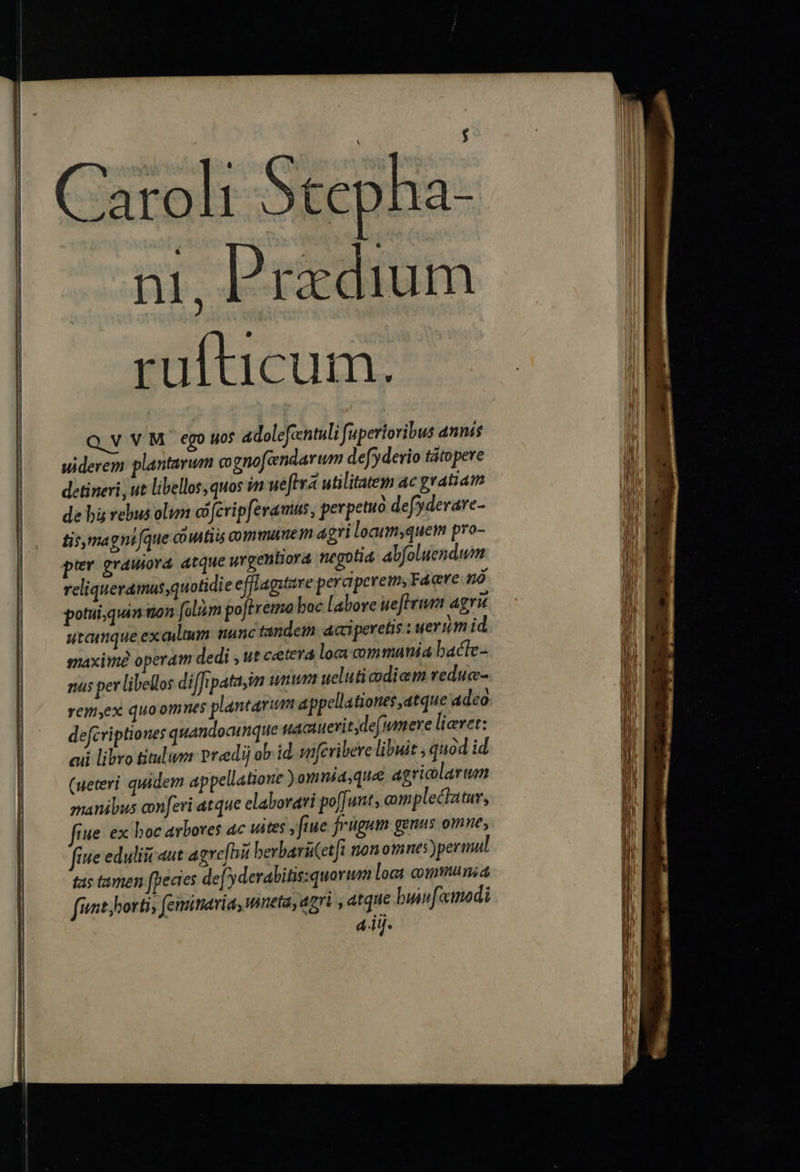 Caroli Stepha-
ni, Prædium
ruſticum.
Q V V M ego uos adoleſcentuli ſuperioribus annis
uiderem plantarum cognoſcendarum deſyderio tātopere
detineri, ut libellos, quos in ueſtrā utilitatem ac gratiam
de his rebus olim cōſcripſeramus, perpetuò deſyderare-
tis, magniſque cōuitiis communem agri locum, quem pro-
pter grauiora atque urgentiora negotia abſoluendum
reliqueramus, quotidie efflagitare perciperem, Facere nō
potui, quin non ſolùm poſtremo hoc labore ueſtrum agrū
utcunque excultum nunc tandem acciperetis: uerùm id
maximè operam dedi, ut cætera loca communia hacte-
nus per libellos diſſipata, in unum ueluti codicem reduce-
rem, ex quo omnes plantarum appellationes, atque adeo
deſcriptiones quandocunque uacauerit, deſumere liceret:
cui libro titulum Prædij ob id inſcribere libuit, quòd id
(ueteri quidem appellatione) omnia, quæ agricolarum
manibus conſeri atque elaborari poſſunt, complectatur,
ſiue ex hoc arbores ac uites, ſiue frugum genus omne,
ſiue eduliū aut agreſtiū herbarū (etſi non omnes) permul
tas tamen ſpecies deſyderabitis: quorum loca communia
ſunt, horti, ſeminaria, uineta, agri, atque huiuſcemodi
a.iij.